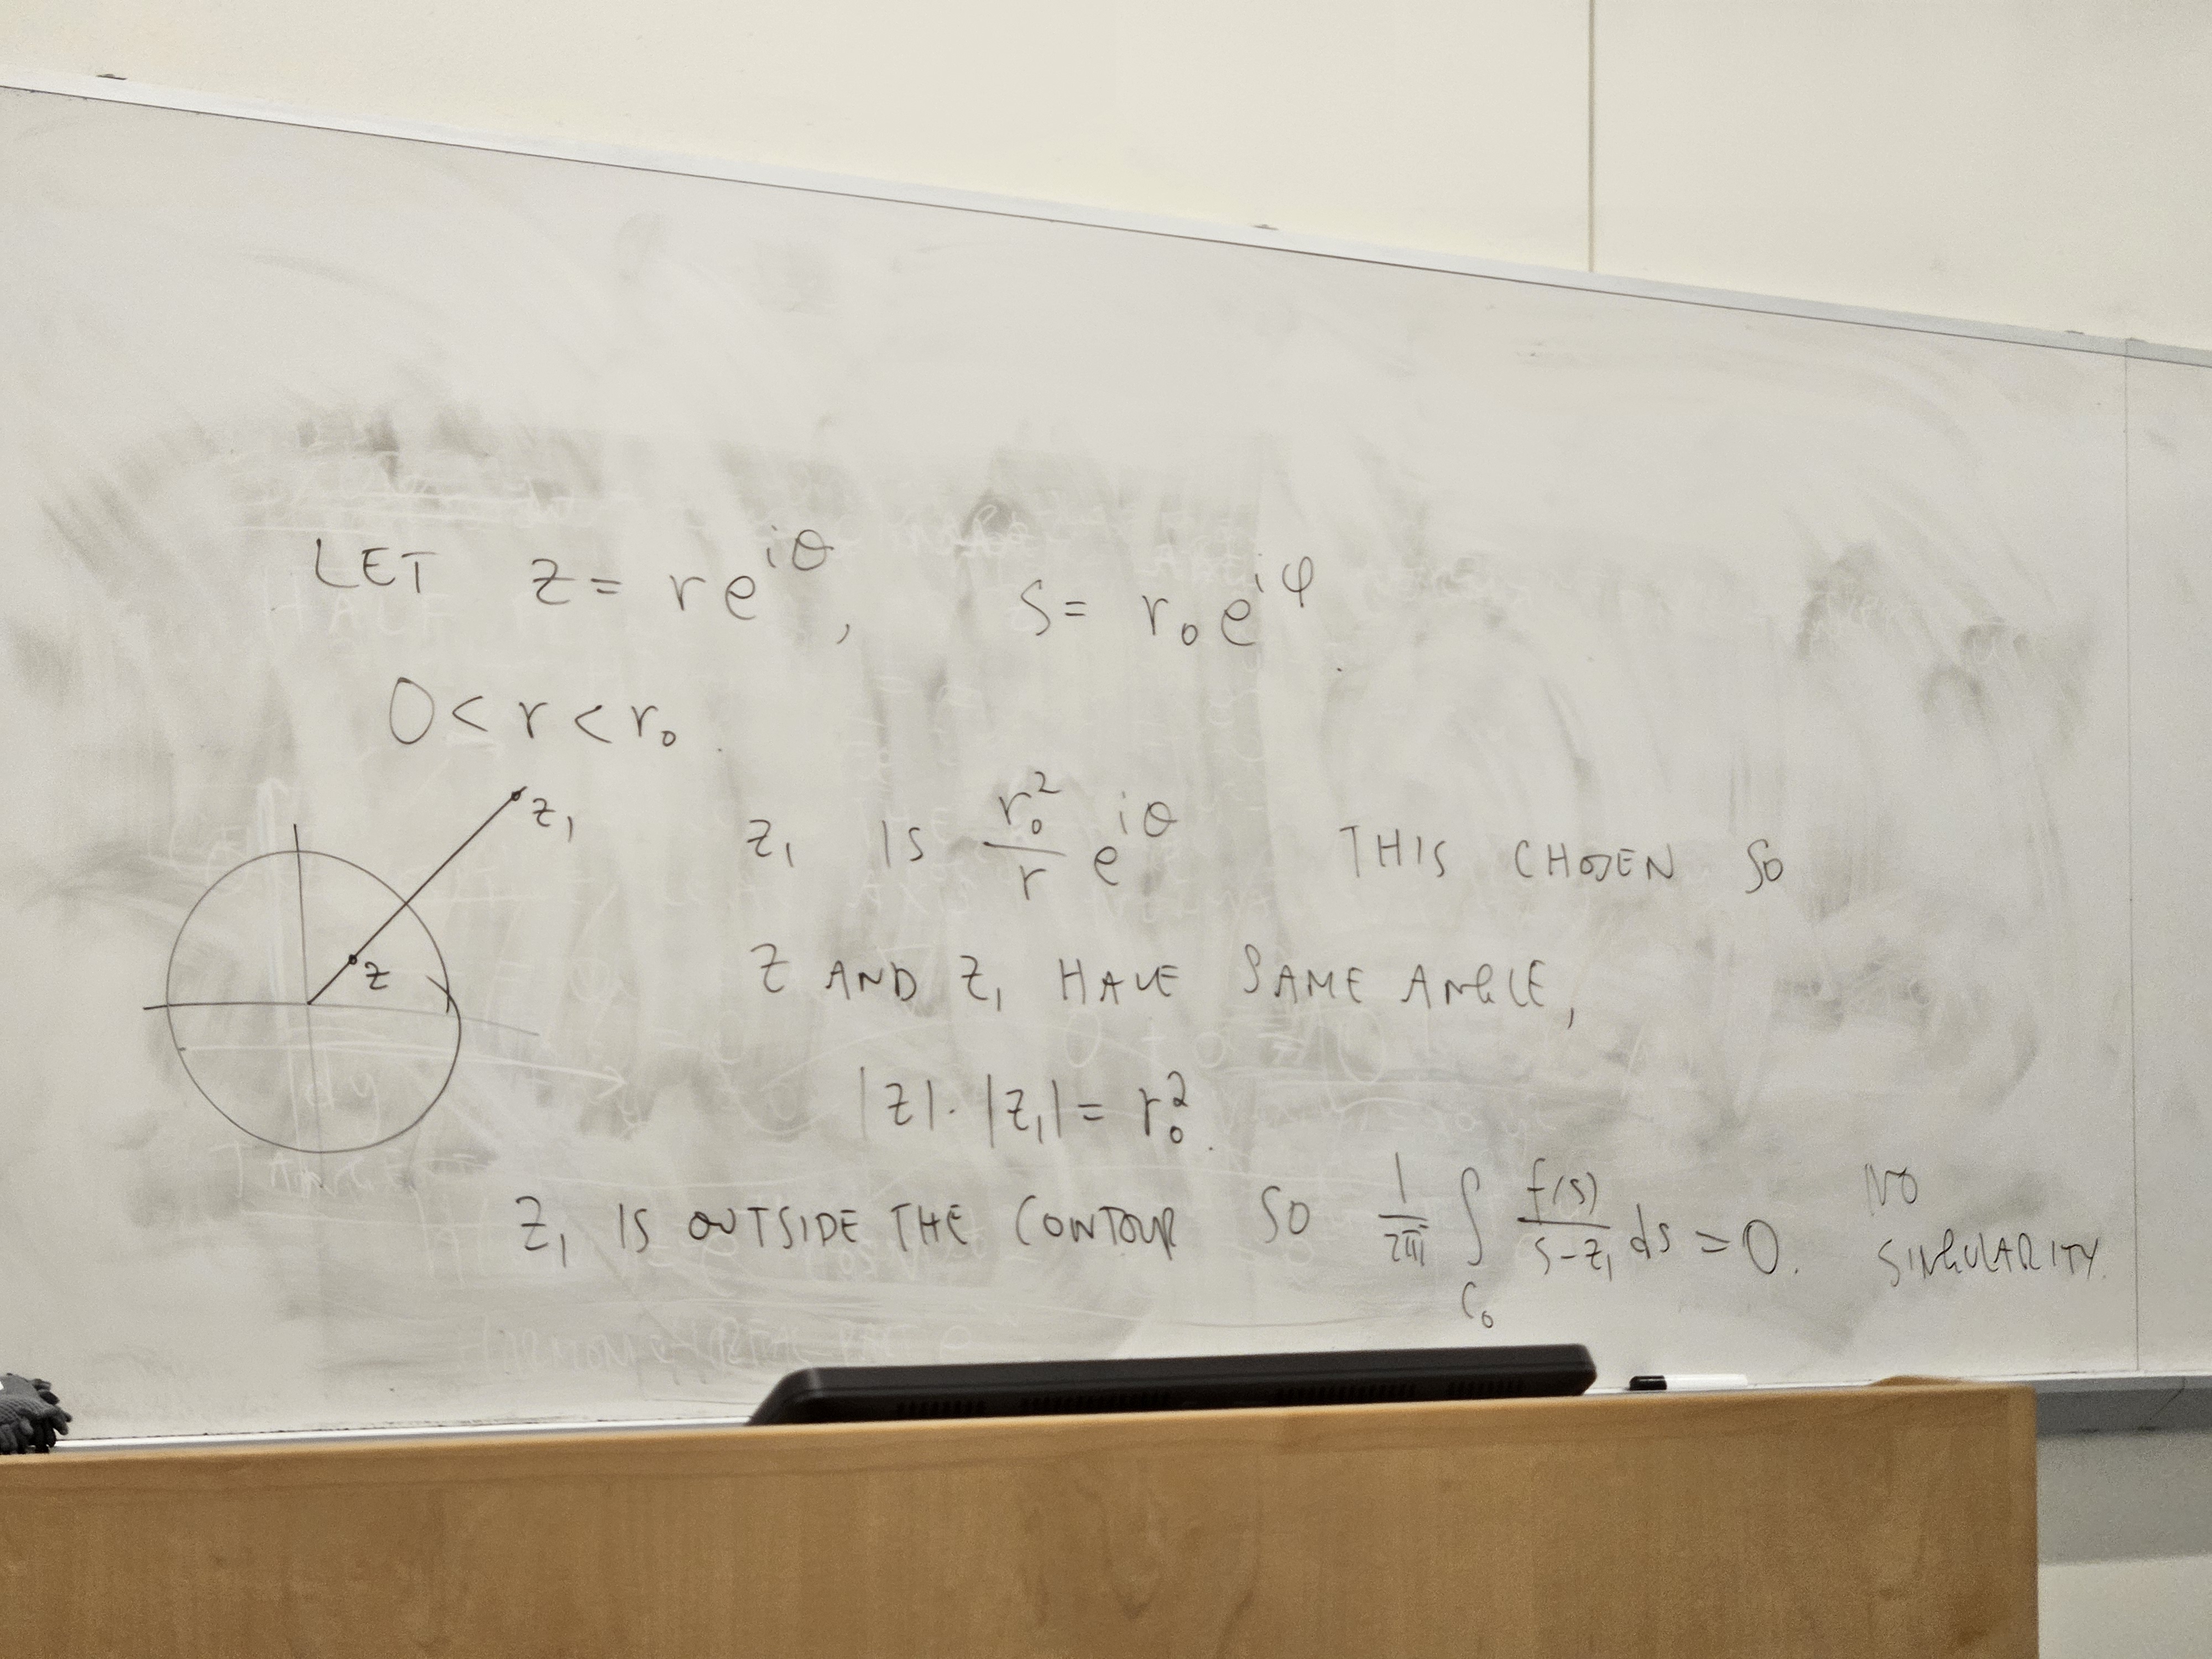 LET z = re^{iθ}, s = r₀e^{iφ}.
0 < r < r₀.
z₁
z
z₁ IS \frac{r₀²}{r} e^{iθ} THIS CHOSEN SO
z AND z₁ HAVE SAME ANGLE,
|z| · |z₁| = r₀².
z₁ IS OUTSIDE THE CONTOUR SO \frac{1}{2πi} ∫_{C₀} \frac{f(s)}{s-z₁} ds = 0. NO
SINGULARITY.